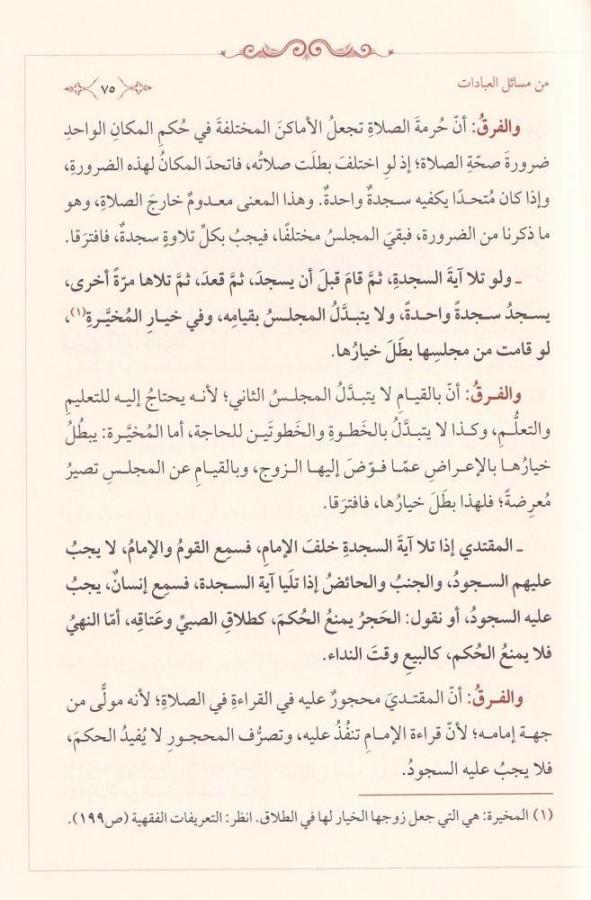 من مسائل العبادات
٧٥
والفرقُ: أنّ حُرمةَ الصلاةِ تجعلُ الأماكنَ المختلفةَ في حُكمِ المكانِ الواحدِ
ضرورةَ صحّةِ الصلاة؛ إذ لوِ اختلفَ بطلَت صلاتُه، فاتحدَ المكانُ لهذه الضرورةِ،
وإذا كان مُتحدًا يكفيه سجدةٌ واحدةٌ. وهذا المعنى معدومٌ خارجَ الصلاةِ، وهو
ما ذكرنا من الضرورة، فبقيَ المجلسُ مختلفًا، فيجبُ بكلِّ تلاوةٍ سجدةٌ، فافترَقا.
ـ ولو تلا آيةَ السجدةِ، ثمَّ قامَ قبلَ أن يسجدَ، ثمَّ قعدَ، ثمَّ تلاها مرّةً أخرى،
يسجدُ سجدةً واحدةً، ولا يتبدَّلُ المجلسُ بقيامِه، وفي خيارِ المُخيَّرةِ(١)،
لو قامت من مجلسِها بطَلَ خيارُها.
والفرقُ: أنّ بالقيامِ لا يتبدَّلُ المجلسُ الثاني؛ لأنه يحتاجُ إليه للتعليمِ
والتعلُّمِ، وكذا لا يتبدَّلُ بالخَطوةِ والخَطوتَين للحاجة، أما المُخيَّرة: يبطُلُ
خيارُها بالإعراضِ عمّا فوّضَ إليها الزوج، وبالقيامِ عن المجلسِ تصيرُ
مُعرِضةً؛ فلهذا بطَلَ خيارُها، فافترَقا.
ـ المقتدي إذا تلا آيةَ السجدةِ خلفَ الإمامِ، فسمِع القومُ والإمامُ، لا يجبُ
عليهم السجودُ، والجنبُ والحائضُ إذا تلَيا آية السجدة، فسمِع إنسانٌ، يجبُ
عليه السجودُ، أو نقول: الحَجرُ يمنعُ الحُكمَ، كطلاقِ الصبيِّ وعَتاقِه، أمّا النهيُ
فلا يمنعُ الحُكم، كالبيعِ وقتَ النداء.
والفرقُ: أنّ المقتديَ محجورٌ عليه في القراءةِ في الصلاةِ؛ لأنه مولًّى من
جهة إمامه؛ لأنّ قراءة الإمامِ تنفُذُ عليه، وتصرُّف المحجورِ لا يُفيدُ الحكمَ،
فلا يجبُ عليه السجودُ.
(١) المخيرة: هي التي جعل زوجها الخيار لها في الطلاق. انظر: التعريفات الفقهية (ص١٩٩).